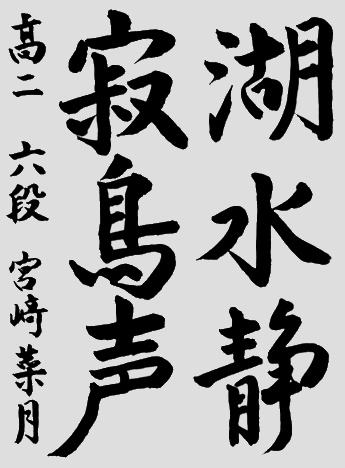 湖水静
寂鳥声
高二 六段 宮﨑菜月